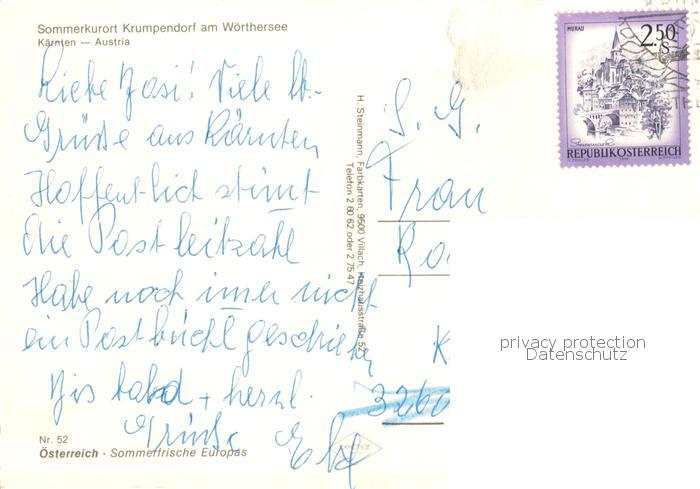 Sommerkurort Krumpendorf am Wörthersee
Kärnten — Austria
Liebe Yosi! Viele lb.
Grüße aus Kärnten
Hoffentlich stimt
die Postleitzahl
Habe noch imer nicht
ein Postbüchl geschrieben
Bis bald + herzl.
Grüße
Nr. 52
Österreich - Sommerfrische Europas
H. Steinmann, Farbkarten, 9500 Villach, Kreuzhausstraße 52
Telefon 2 80 62 oder 2 75 47
MURAU
2.50
S
REPUBLIK ÖSTERREICH
S. G.
Frau
K
3260
privacy protection
Datenschutz